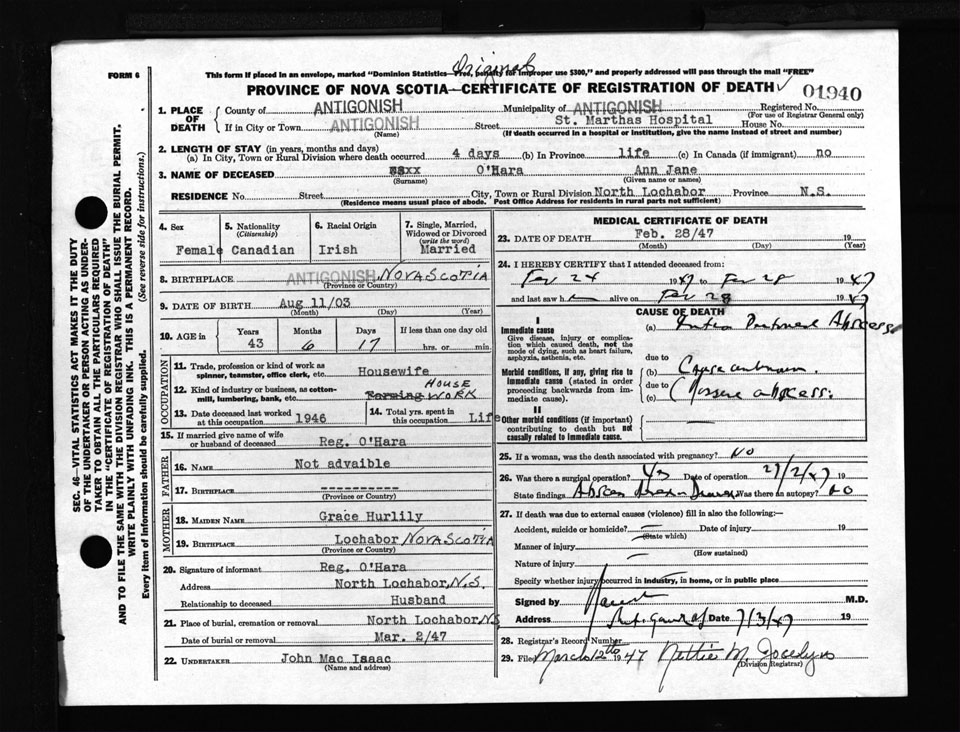 Original
FORM 6
This form if placed in an envelope, marked "Dominion Statistics—Free, penalty for improper use $300," and properly addressed will pass through the mail "FREE"
PROVINCE OF NOVA SCOTIA—CERTIFICATE OF REGISTRATION OF DEATH
01940
1. PLACE OF DEATH County of ANTIGONISH Municipality of ANTIGONISH Registered No.
(For use of Registrar General only)
If in City or Town ANTIGONISH Street St. Marthas Hospital House No.
(Name) (If death occurred in a hospital or institution, give the name instead of street and number)
2. LENGTH OF STAY (in years, months and days)
(a) In City, Town or Rural Division where death occurred 4 days (b) In Province life (c) In Canada (if immigrant) no
3. NAME OF DECEASED O'Hara Ann Jane
(Surname) (Given name or names)
RESIDENCE No. Street City, Town or Rural Division North Lochabor Province N.S.
(Residence means usual place of abode. Post Office Address for residents in rural parts not sufficient)
4. Sex
Female
5. Nationality
(Citizenship)
Canadian
6. Racial Origin
Irish
7. Single, Married, Widowed or Divorced
(write the word)
Married
8. BIRTHPLACE ANTIGONISH NOVA SCOTIA
(Province or Country)
9. DATE OF BIRTH Aug 11/03
(Month) (Day) (Year)
10. AGE in Years Months Days If less than one day old
43 6 17 hrs. or min.
OCCUPATION
11. Trade, profession or kind of work as spinner, teamster, office clerk, etc. Housewife
12. Kind of industry or business, as cotton-mill, lumbering, bank, etc. Farming HOUSE WORK
13. Date deceased last worked at this occupation 1946
14. Total yrs. spent in this occupation Life
15. If married give name of wife or husband of deceased Reg. O'Hara
FATHER
16. NAME Not advaible
17. BIRTHPLACE ----------
(Province or Country)
MOTHER
18. MAIDEN NAME Grace Hurlily
19. BIRTHPLACE Lochabor NOVA SCOTIA
(Province or Country)
20. Signature of informant Reg. O'Hara
Address North Lochabor, N.S.
Relationship to deceased Husband
21. Place of burial, cremation or removal North Lochabor, N.S.
Date of burial or removal Mar. 2/47
22. UNDERTAKER John Mac Isaac
(Name and address)
MEDICAL CERTIFICATE OF DEATH
23. DATE OF DEATH Feb. 28/47 19
(Month) (Day) (Year)
24. I HEREBY CERTIFY that I attended deceased from:
Fev 24 1947 to Fev 28 1947
and last saw h alive on Fev 28 1947
CAUSE OF DEATH
I
Immediate cause
Give disease, injury or complication which caused death, not the mode of dying, such as heart failure, asphyxia, asthenia, etc.
(a) Abscess
due to
Morbid conditions, if any, giving rise to immediate cause (stated in order proceeding backwards from immediate cause).
(b)
due to
(c) abscess.
II
Other morbid conditions (if important) contributing to death but not causally related to immediate cause.
25. If a woman, was the death associated with pregnancy? NO
26. Was there a surgical operation? Yes Date of operation 27/2/47 19
State findings Abscess Was there an autopsy? NO
27. If death was due to external causes (violence) fill in also the following:—
Accident, suicide or homicide? Date of injury 19
(State which)
Manner of injury
(How sustained)
Nature of injury
Specify whether injury occurred in industry, in home, or in public place
Signed by M.D.
Address Date 7/3/47 19
28. Registrar's Record Number
29. Filed March 12th 1947 Nettie M. Jocelyn
(Division Registrar)
SEC. 46—VITAL STATISTICS ACT MAKES IT THE DUTY
OF THE UNDERTAKER OR PERSON ACTING AS UNDER-
TAKER TO OBTAIN ALL THE PARTICULARS REQUIRED
IN THE "CERTIFICATE OF REGISTRATION OF DEATH"
AND TO FILE THE SAME WITH THE DIVISION REGISTRAR WHO SHALL ISSUE THE BURIAL PERMIT.
WRITE PLAINLY WITH UNFADING INK. THIS IS A PERMANENT RECORD.
Every item of information should be carefully supplied. (See reverse side for instructions.)